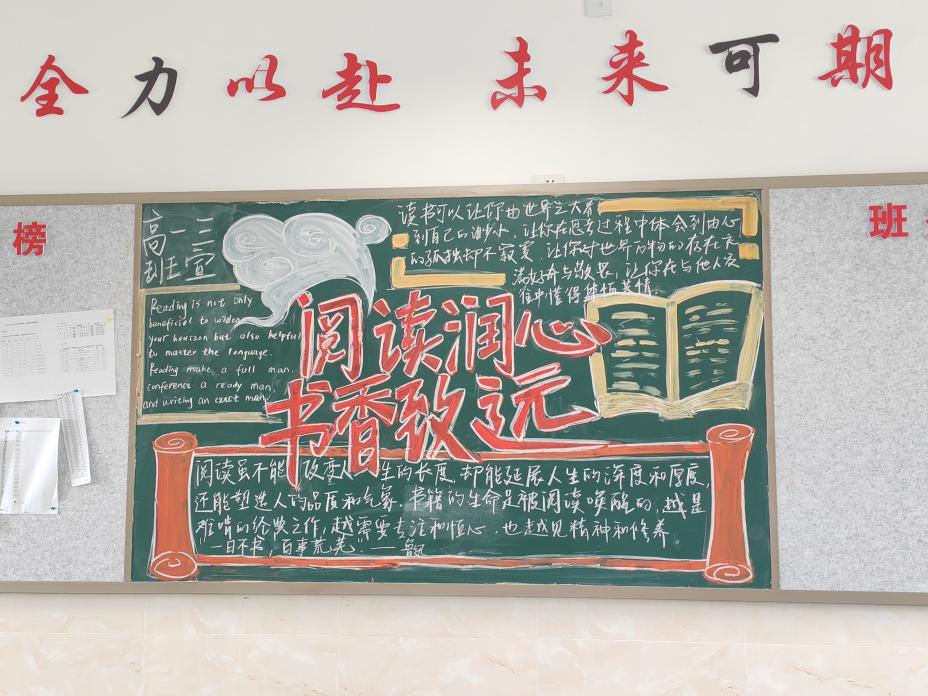 全力以赴 未来可期
榜
班
高一三
班宣
读书可以让你由世界之大看
到自己的渺小,让你在思考过程中体会到由心
的孤独却不寂寞,让你对世界万物的存在充
满好奇与敬畏,让你在与他人交
往中懂得体恤共情.
Reading is not only
beneficial to widen
your horizon but also helpful
to master the language.
Reading make a full man.
conference a ready man
and writing an exact man
阅读润心
书香致远
阅读虽不能改变人生的长度,却能延展人生的深度和厚度,
还能塑造人的品度和气象.书籍的生命是被阅读唤醒的,越是
难啃的经典之作,越需要专注和恒心,也越见精神和修养
"一日不书,百事荒芜"——